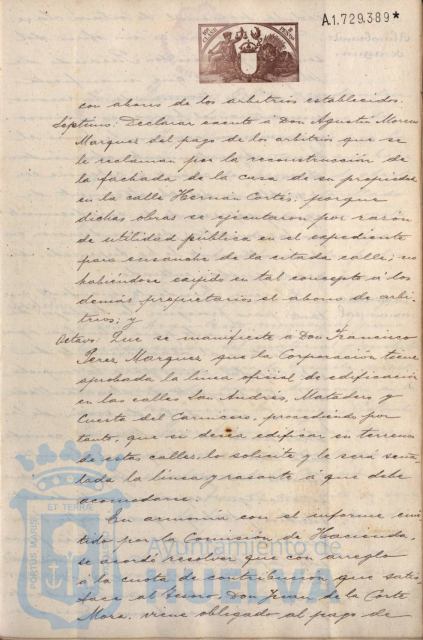 A1.729.389*
con abono de los arbitrios establecidos.
Séptimo: Declarar exento á Don Agustín Moreno
Marquez del pago de los arbitrios que se
le reclaman por la reconstrucción de
la fachada de la casa de su propiedad
en la calle Hernán Cortés; porque
dichas obras se ejecutaron por razón
de utilidad pública en el expediente
para ensanche de la citada calle; no
habiéndose exijido en tal concepto á los
demás propietarios el abono de arbi-
trios; y
Octavo: Que se manifieste á Don Francisco
Perez Marquez que la Corporación tiene
aprobada la linea oficial de edificación
en las calles San Andrés, Matadero y
Cuesta del Carnicero, procediendo por
tanto, que si desea edificar en terrenos
de estas calles, lo solicite y le será seña-
lada la linea y rasante á que debe
acomodarse.
En armonía con el informe emi-
tido por la Comisión de Hacienda,
se acordó resolver que con arreglo
á la cuota de contribución que satis-
face al Tesoro, Don Juan de la Corte
Mora, viene obligado al pago de
PORTUS MARIS ET TERRAE
Ayuntamiento de
HUELVA